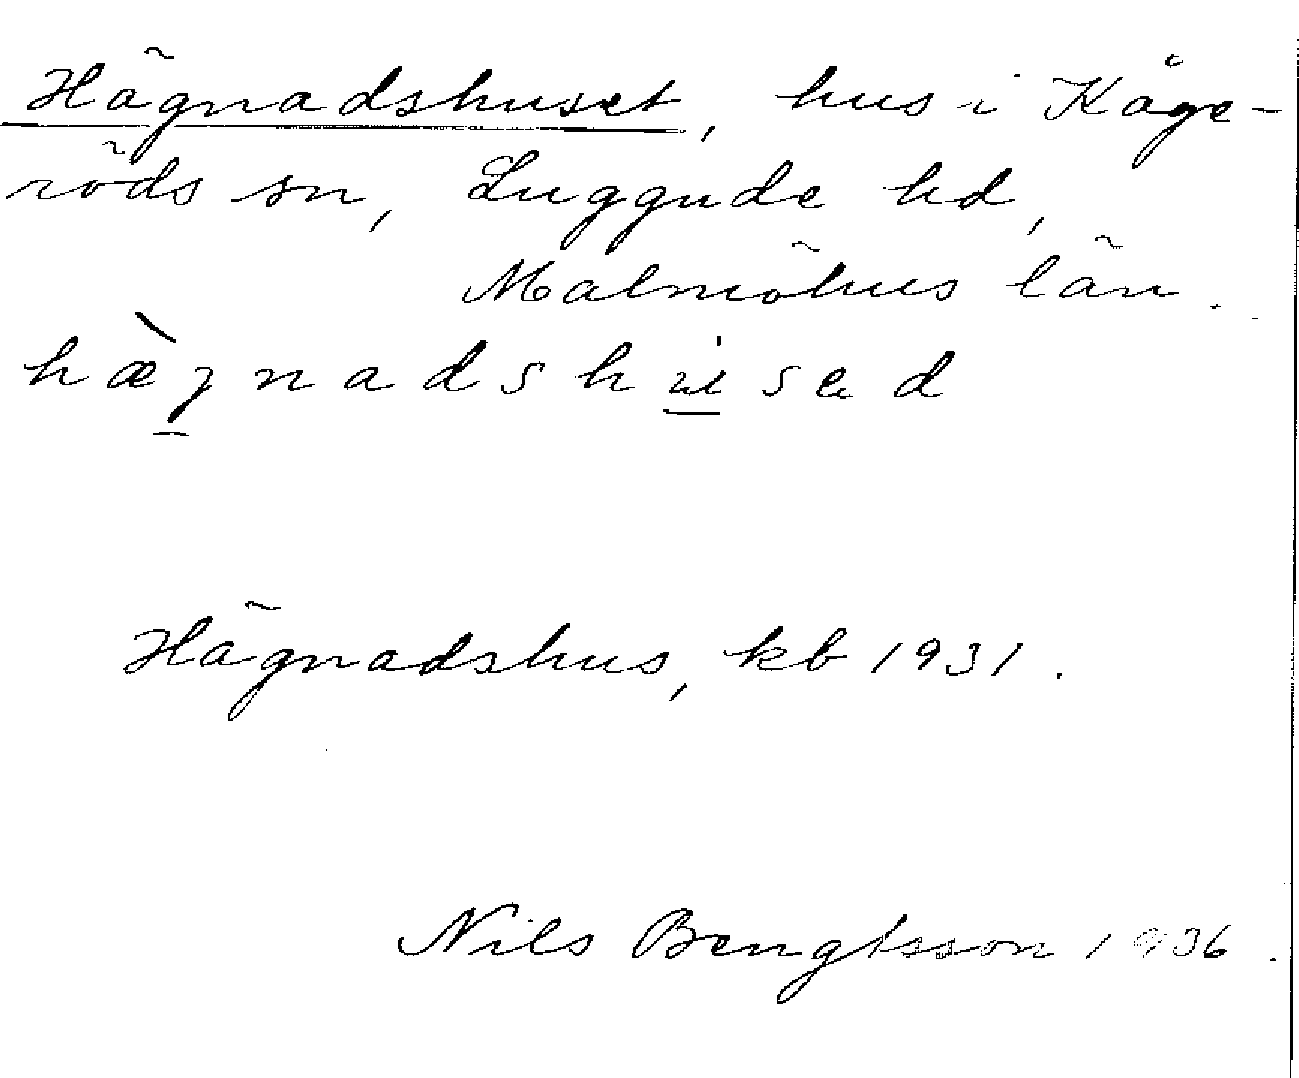 Hägnadshuset, hus i Kåge-
röds sn, Luggude hd,
Malmöhus län.
hæ̀gnadshusad
Hägnadshus, kb 1931.
Nils Bengtsson 1936.